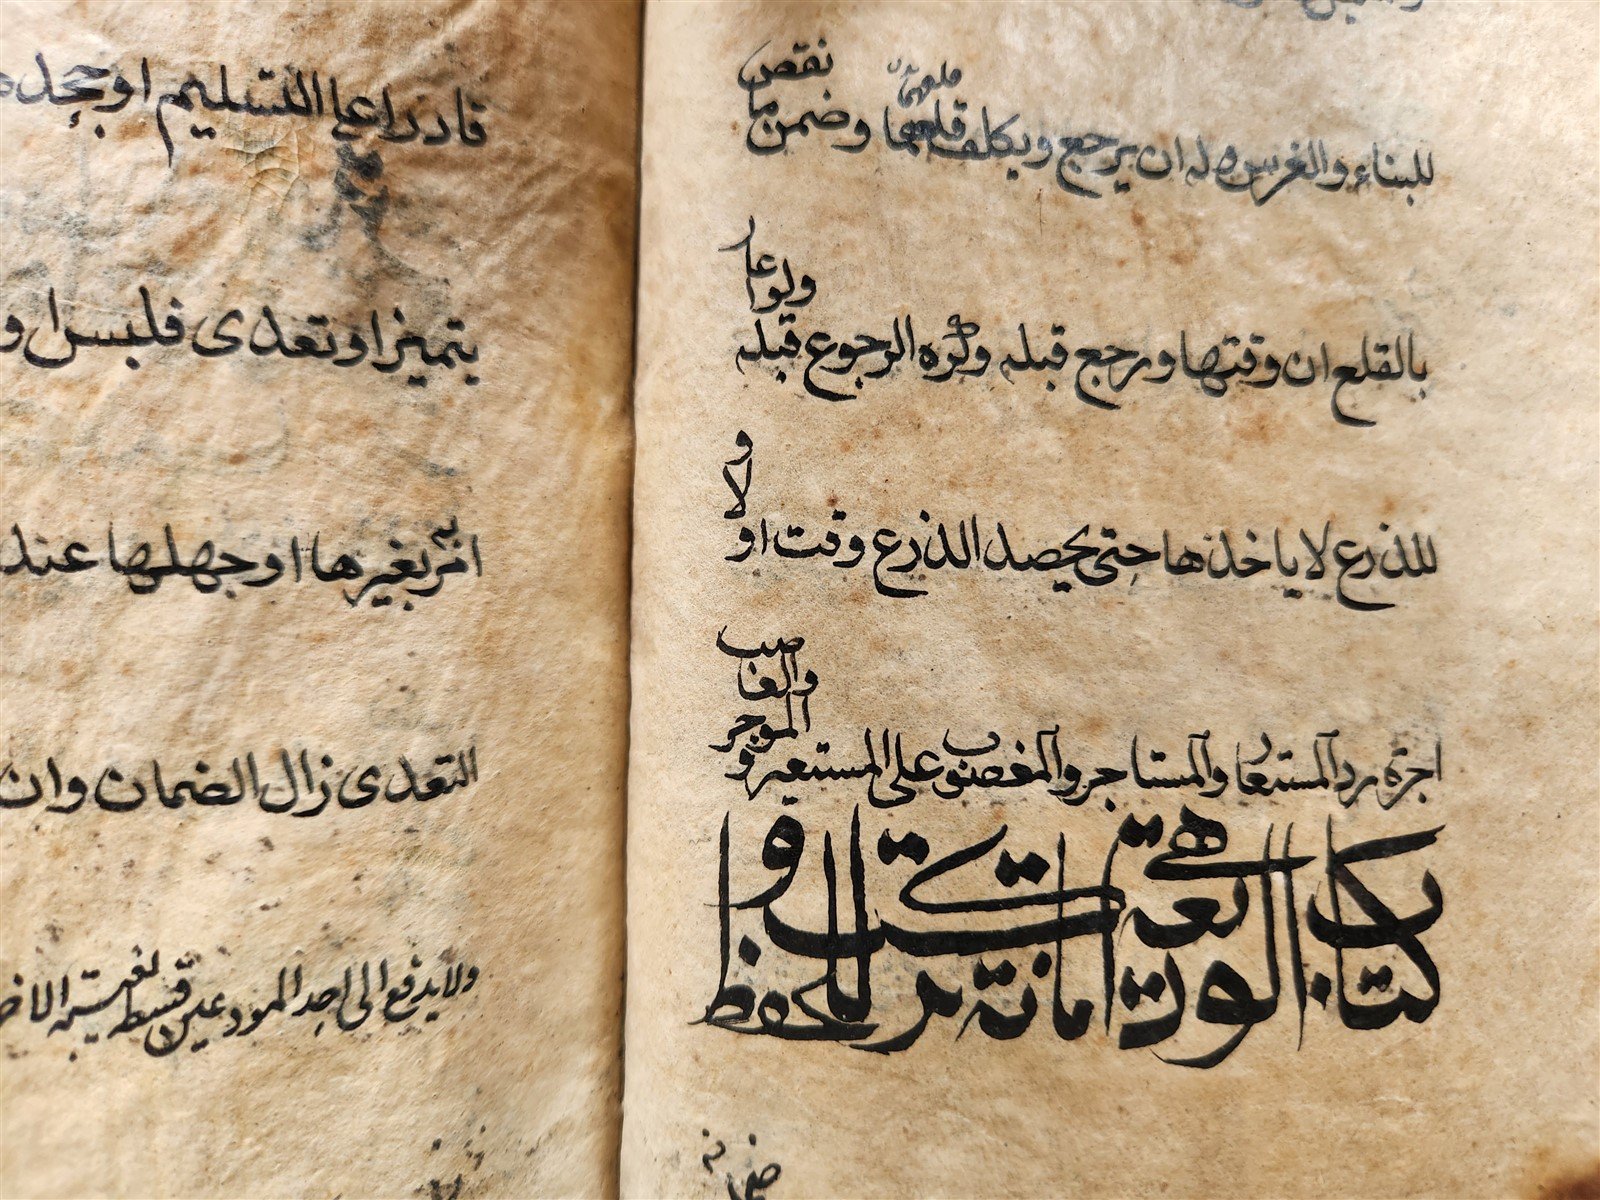 للبناء والغرس وله ان يرجع ويكلف قلعهما وضمن ما نقص
بالقلع ان وقتها ورجع قبله وكره الرجوع قبله ولو اعار
للذرع لا ياخذها حتى يحصد الذرع وقت او لا و
اجرة رد المستعار والمستاجر والمغصوب على المستعير و الموجر والغاصب
كتاب الوديعة هي امانة تركت للحفظ و
قادرا على التسليم او جحد
يتميز او تعدى فلبس او
امر بغيرها او جهلها عند
التعدى زال الضمان وان
ولا يدفع الى احد المودعين قسطه لغيبة الاخر